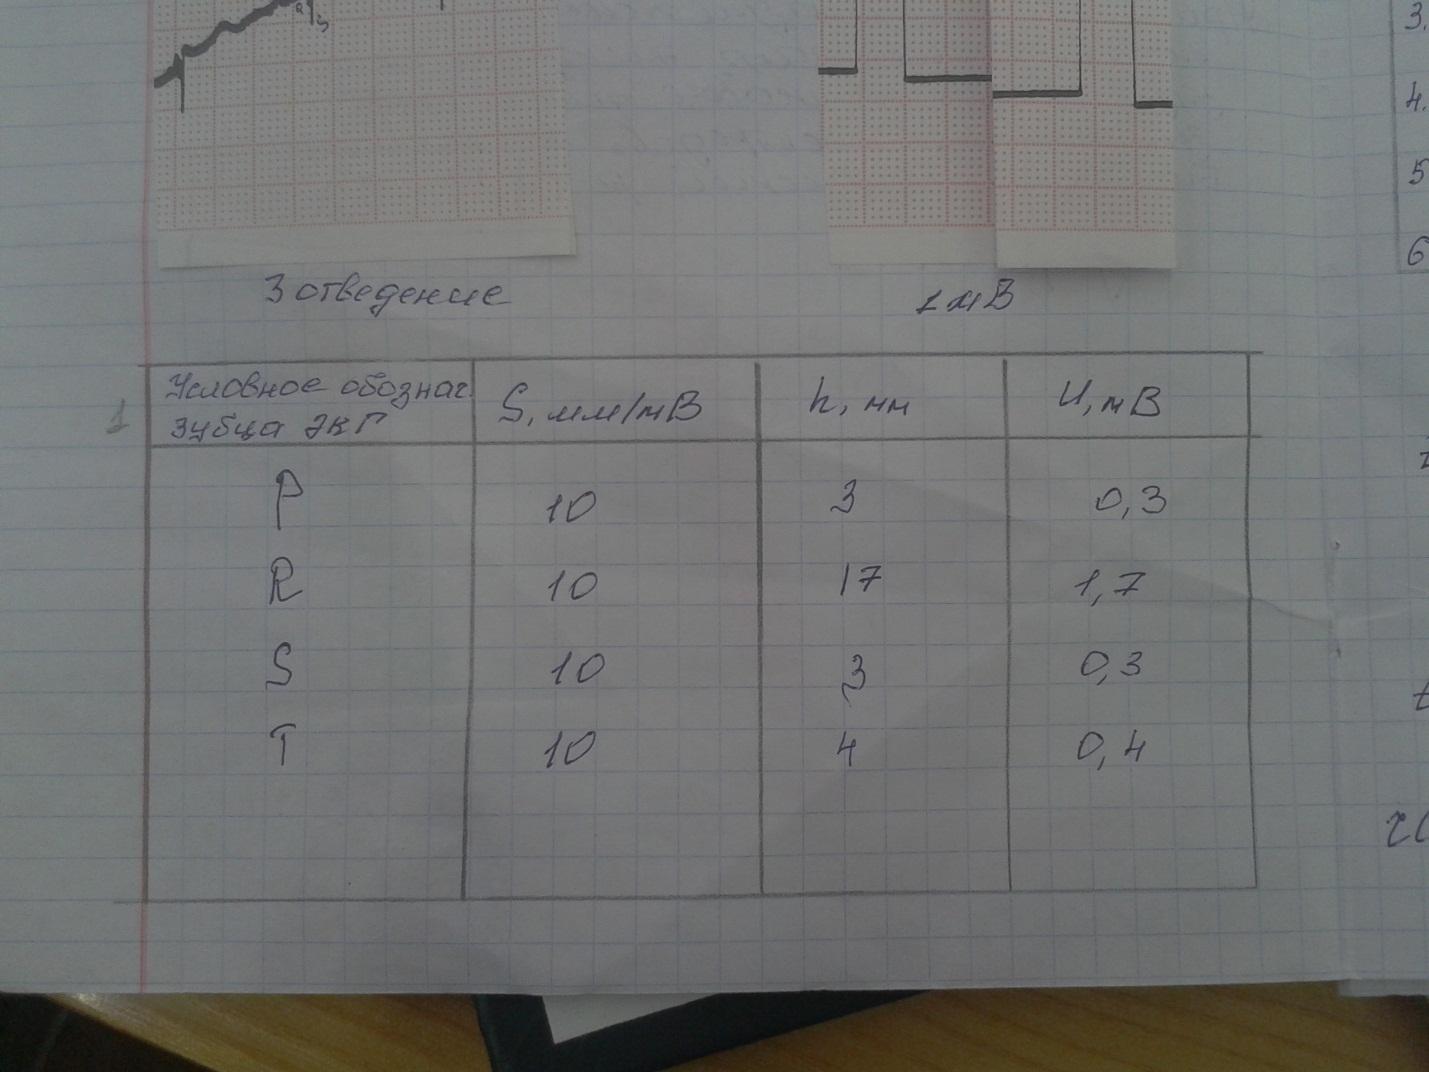 3.
4.
5
6
3 отведение
1 мВ
1
Условное обознач.
зубца ЭКГ
S, мм/мВ
h, мм
U, мВ
P 10 3 0,3
R 10 17 1,7
S 10 3 0,3
T 10 4 0,4